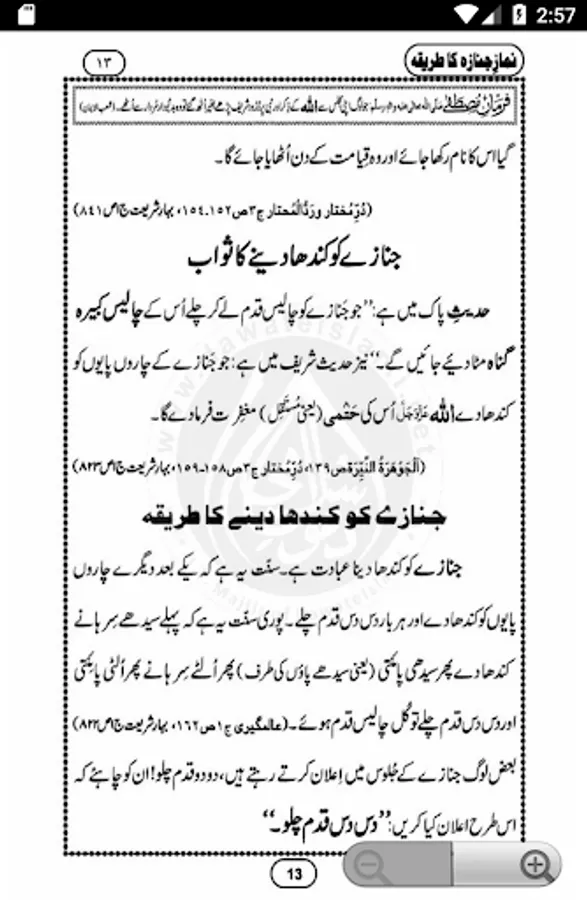 2:57
نمازِ جنازہ کا طریقہ
١٣
فرمانِ مصطفٰے صلی اللہ تعالیٰ علیہ والہ وسلم: جو لوگ اپنی مجلس سے اللہ کے ذکر اور نبی پر دُرُود شریف پڑھے بغیر اُٹھ گئے تو وہ بدبُودار مُردار سے اُٹھے۔ (شعب الایمان)
گیا اس کا نام رکھا جائے اور وہ قِیامت کے دن اُٹھایا جائے گا۔
(دُرِّمُختار ورَدُّالْمُحتار ج٣ص١٥٢۔١٥٤، بہارِ شریعت ج١ص٨٤١)
جنازے کو کندھا دینے کا ثواب
حدیثِ پاک میں ہے: ’’جو جَنازے کو چالیس قدم لے کر چلے اُس کے چالیس کبیرہ
گناہ مٹا دیئے جائیں گے۔‘‘ نیز حدیث شریف میں ہے: جو جَنازے کے چاروں پایوں کو
کندھا دے اللہ عَزَّوَجَلَّ اُس کی حَتْمی (یعنی مُسْتَقِل) مغفِرت فرما دے گا۔
(اَلْجَوْہَرَۃُ النَّیِّرَۃ ص١٣٩، دُرِّمُختار ج٣ص١٥٨۔١٥٩، بہارِ شریعت ج١ص٨٢٣)
جنازے کو کندھا دینے کا طریقہ
جنازے کو کندھا دینا عبادت ہے۔ سنّت یہ ہے کہ یکے بعد دیگرے چاروں
پایوں کو کندھا دے اور ہر بار دس دس قدم چلے۔ پوری سنّت یہ ہے کہ پہلے سیدھے سِرہانے
کندھا دے پھر سیدھی پائنتی (یعنی سیدھے پاؤں کی طرف) پھر اُلٹے سِرہانے پھر اُلٹی پائنتی
اور دس دس قدم چلے تو کُل چالیس قدم ہوئے۔ (عالمگیری ج١ص١٦٢، بہارِ شریعت ج١ص٨٢٢)
بعض لوگ جنازے کے جُلوس میں اِعلان کرتے رہتے ہیں، دو دو قدم چلو! ان کو چاہئے کہ
اس طرح اعلان کیا کریں: ’’دس دس قدم چلو۔‘‘
13